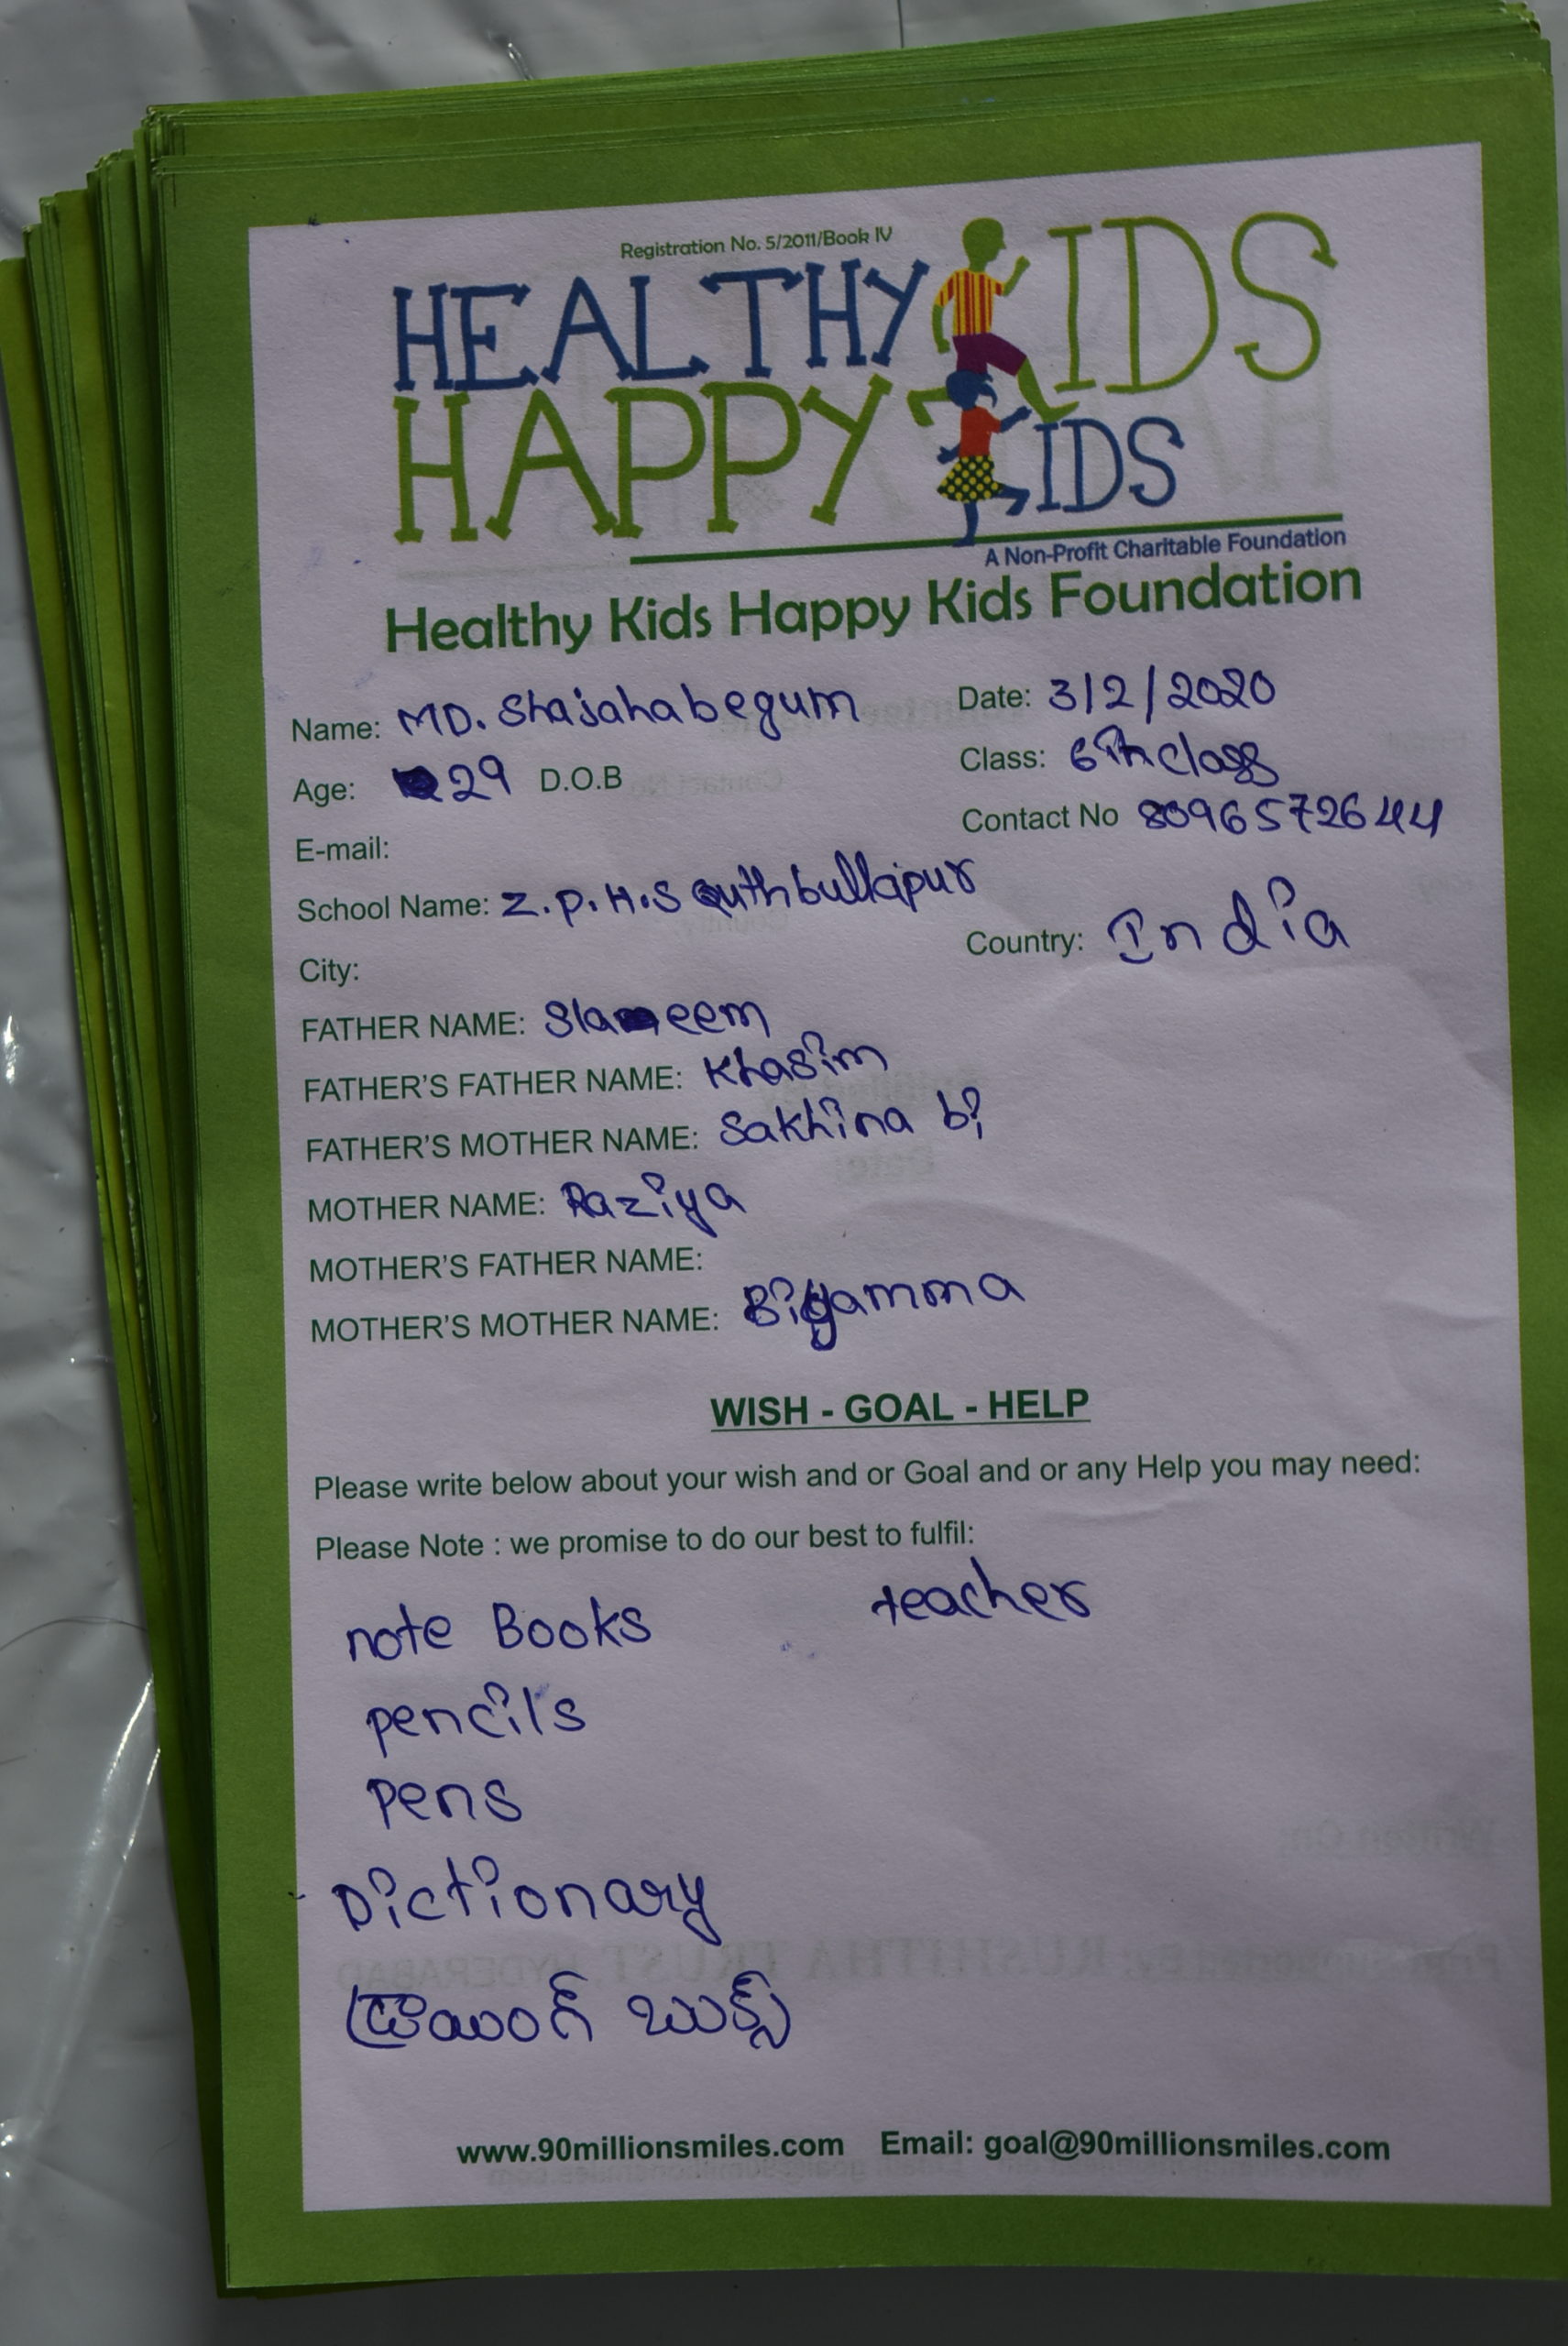 Registration No. 5/2011/Book IV
HEALTHY KIDS
HAPPY KIDS
A Non-Profit Charitable Foundation
Healthy Kids Happy Kids Foundation
Name: MD. Shajahabegum Date: 3/2/2020
Age: 29 D.O.B Class: 6th class
E-mail: Contact No 8096572644
School Name: Z.P.H.S Quthbullapur
City: Country: India
FATHER NAME: Slameem
FATHER'S FATHER NAME: Khasim
FATHER'S MOTHER NAME: Sakhina bi
MOTHER NAME: Raziya
MOTHER'S FATHER NAME:
MOTHER'S MOTHER NAME:
WISH - GOAL - HELP
Please write below about your wish and or Goal and or any Help you may need:
Please Note : we promise to do our best to fulfil:
note Books teacher
pencils
pens
Dictionary
డ్రాయింగ్ బుక్స్
www.90millionsmiles.com Email: goal@90millionsmiles.com